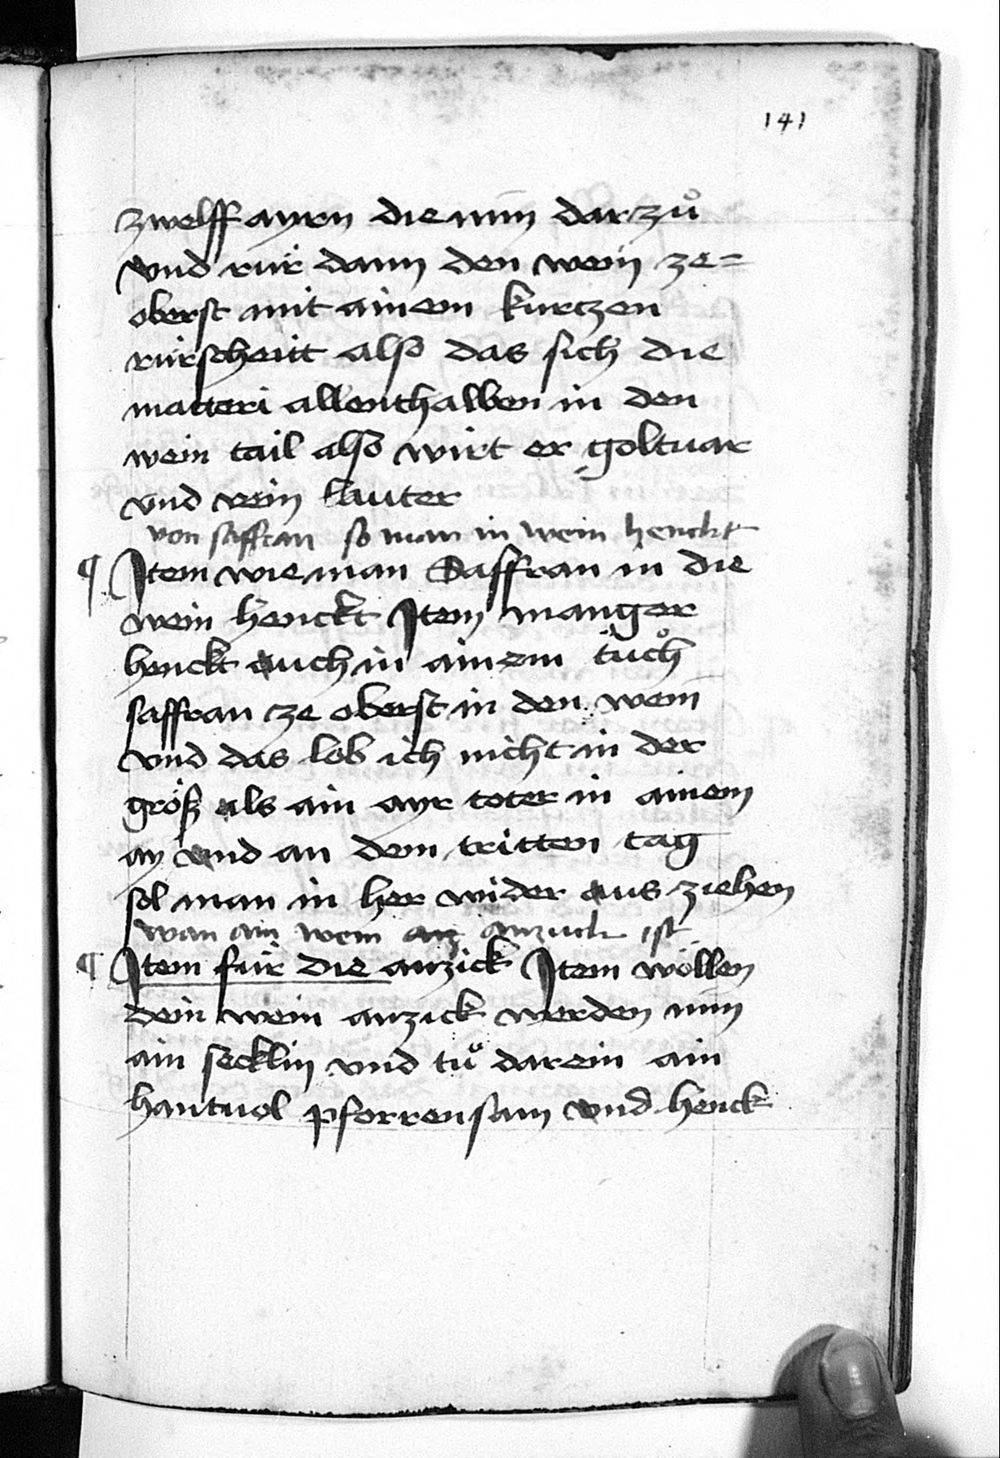 141
zwelff ayrn die nim dar zuͦ
vnd rür dann den wein ze=
oberst mit ainem kurczen
rürscheitt also das sich die
matteri allenthalben in den
wein tail also wirt er goltuar
vnd vein lauter
von saffran so man in wein henckt
¶ Item wie man Saffran in die
wein henckt Item manger
henckt auch in ainem tuͦch
saffran ze oberst in den wein
vnd das lob ich nicht in der
größ als ain ayr toter in ainem
ay vnd an dem tritten tag
sol man in her wider aus ziehen
wan ain wein anzuck ist
¶ Item für die anzick Item wöllen
dein wein anzick werden nim
ain secklin vnd tuͦ darein ain
hantuol pforrensam vnd henck